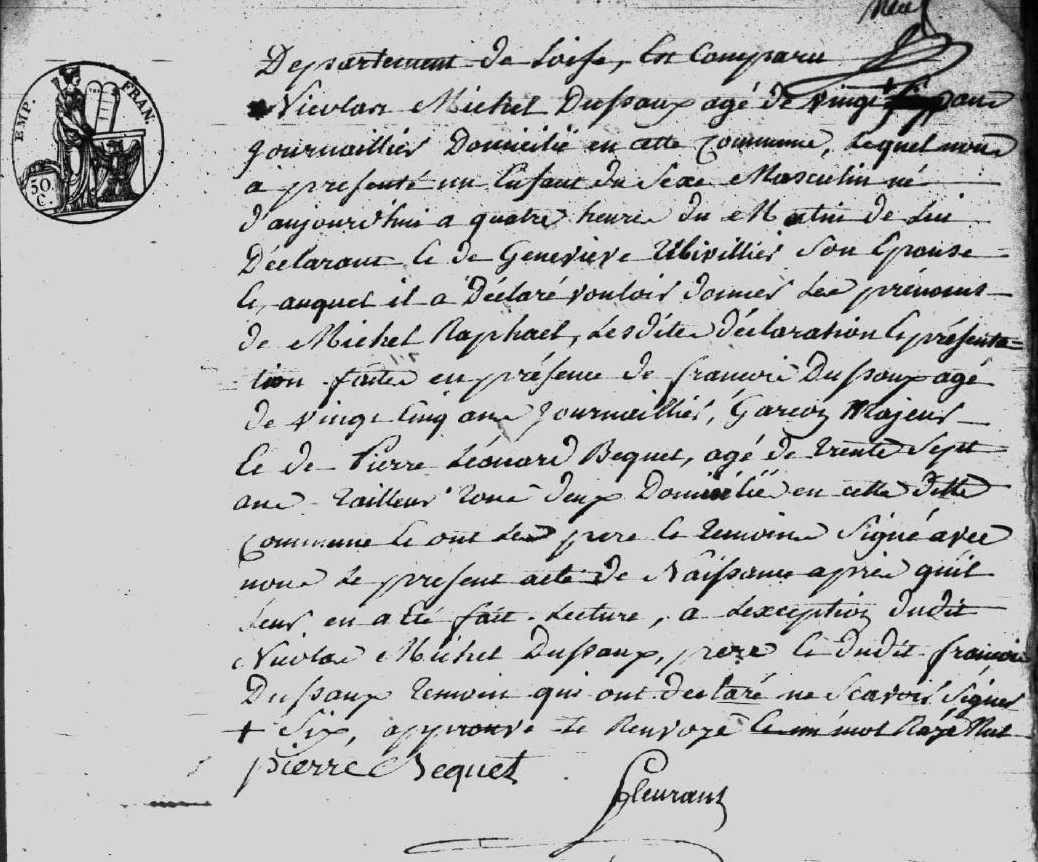 EMP. FRAN.
50.
C.
Departement de Loise, Est Comparu
Nicolas Michel Dussaux agé de vingt + ans
Journaillier Domicilié en cette Commune, Lequel nous
a presenté un Enfant du Sexe Masculin né
d'aujourd'hui a quatre heures du Matin de Lui
Déclarant Et de Genevieve Son Epouse
Et, auquel il a Déclaré vouloir donner Les prénoms
de Michel Raphael, Lesdites déclaration Et présenta=
tion faites en présence de francois Dussaux agé
de vingt Cinq ans Journaillier, Garcon Majeur
Et de Pierre Léonard Bequet, agé de trente Sept
ans tailleur tous deux Domiciliés en cette ditte
Commune Et ont Les pere Et temoins Signé avec
nous Le present acte de Naissance après quil
Leur en a Eté fait Lecture, a Lexception dudit
Nicolas Michel Dussaux, pere Et dudit francois
Dussaux temoin qui ont declaré ne Scavoir Signer
+ Six, approuvé Le Renvoye Et un mot Rayé Nul
pierre Bequet
fleurant